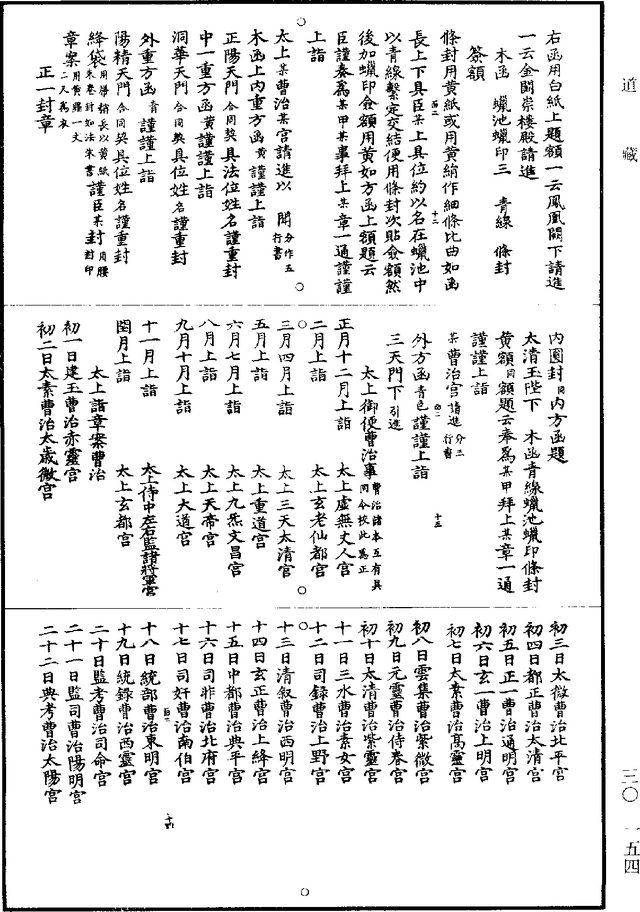 道藏
右函用白紙上題額一云鳳凰闕下請進
一云金闕崇樓殿請進
木函　蠟池蠟印三　青線　條封
簽額
條封用黃紙或用黃絹作細條比曲如函
長上下具臣某上具位約以名在蠟池中
以青線繫定交結使用條封次貼僉額然
後加蠟印僉額用黃如方函上額題云
臣謹奏為某甲某事拜上某章一通謹謹
上詣
太上某曹治某宮請進以　聞分作五行書
木函上內重方函黃謹謹上詣
正陽天門合同契具法位姓名謹重封
中一重方函黃謹謹上詣
洞華天門合同契具位姓名謹重封
外重方函青謹謹上詣
陽精天門合同契具位姓名謹重封
絳袋用帛稱長以黃紙朱卷封如法朱書謹臣某封用腰封印
章案用黃羅一丈二尺為衣
正一封章
內圓封同內方函題
太清玉陛下　木函青線蠟池蠟印條封
黃額同額題云奉為某甲拜上某章一通
謹謹上詣
某曹治宮請進分三行書
外方函青色謹謹上詣
三天門下引進
太上御便曹治事曹治諸本互有具同今校此為正
正月十二月上詣　太上虛無丈人宮
二月上詣　太上玄老仙都宮
三月四月上詣　太上三天太清宮
五月上詣　太上重道宮
六月七月上詣　太上九炁文昌宮
八月上詣　太上天帝宮
九月十月上詣　太上大道宮
十一月上詣　太上侍中左右監諸將軍宮
閏月上詣　太上玄都宮
太上詣章案曹治
初一日建玉曹治赤靈宮
初二日太素曹治太歲微宮
初三日太微曹治北平宮
初四日都正曹治太清宮
初五日正一曹治通明宮
初六日玄一曹治上明宮
初七日太素曹治高靈宮
初八日雲集曹治紫微宮
初九日元靈曹治侍眷宮
初十日太清曹治紫靈宮
十一日三水曹治素女宮
十二日司錄曹治上野宮
十三日清叙曹治西明宮
十四日玄正曹治上絳宮
十五日中都曹治典平宮
十六日司非曹治北府宮
十七日司奸曹治南伯宮
十八日統部曹治東明宮
十九日統錄曹治西靈宮
二十日監考曹治司命宮
二十一日監司曹治陽明宮
二十二日典考曹治太陽宮
三〇　一五四